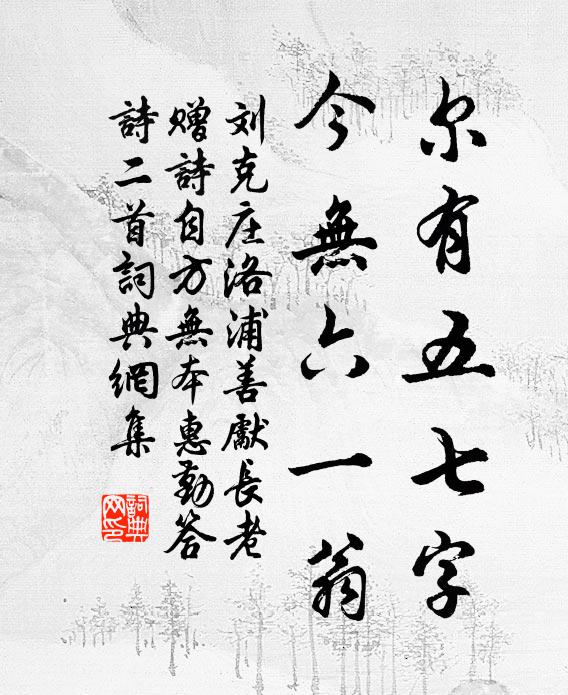 尔有五七字
今無六一翁
刘克庄洛浦善獻長老
赠詩自方無本惠勤答
詩二首詞典網集
詞典网印